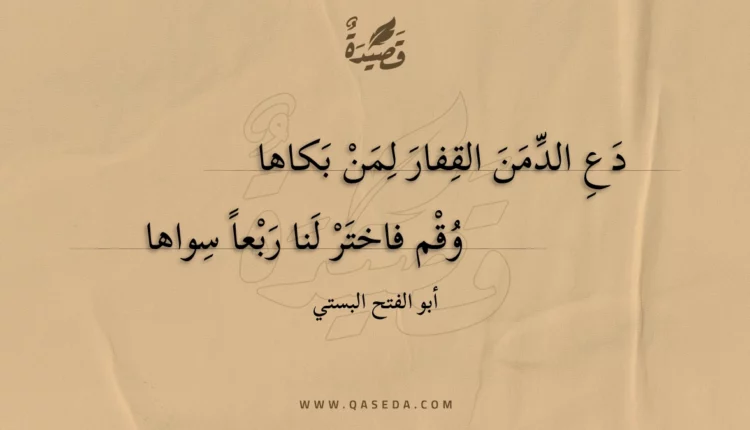 قَصِيدَةٌ
دَعِ الدِّمَنَ القِفارَ لِمَنْ بَكاها
وُقْم فاختَرْ لَنا رَبْعاً سِواها
أبو الفتح البستي
WWW.QASEDA.COM